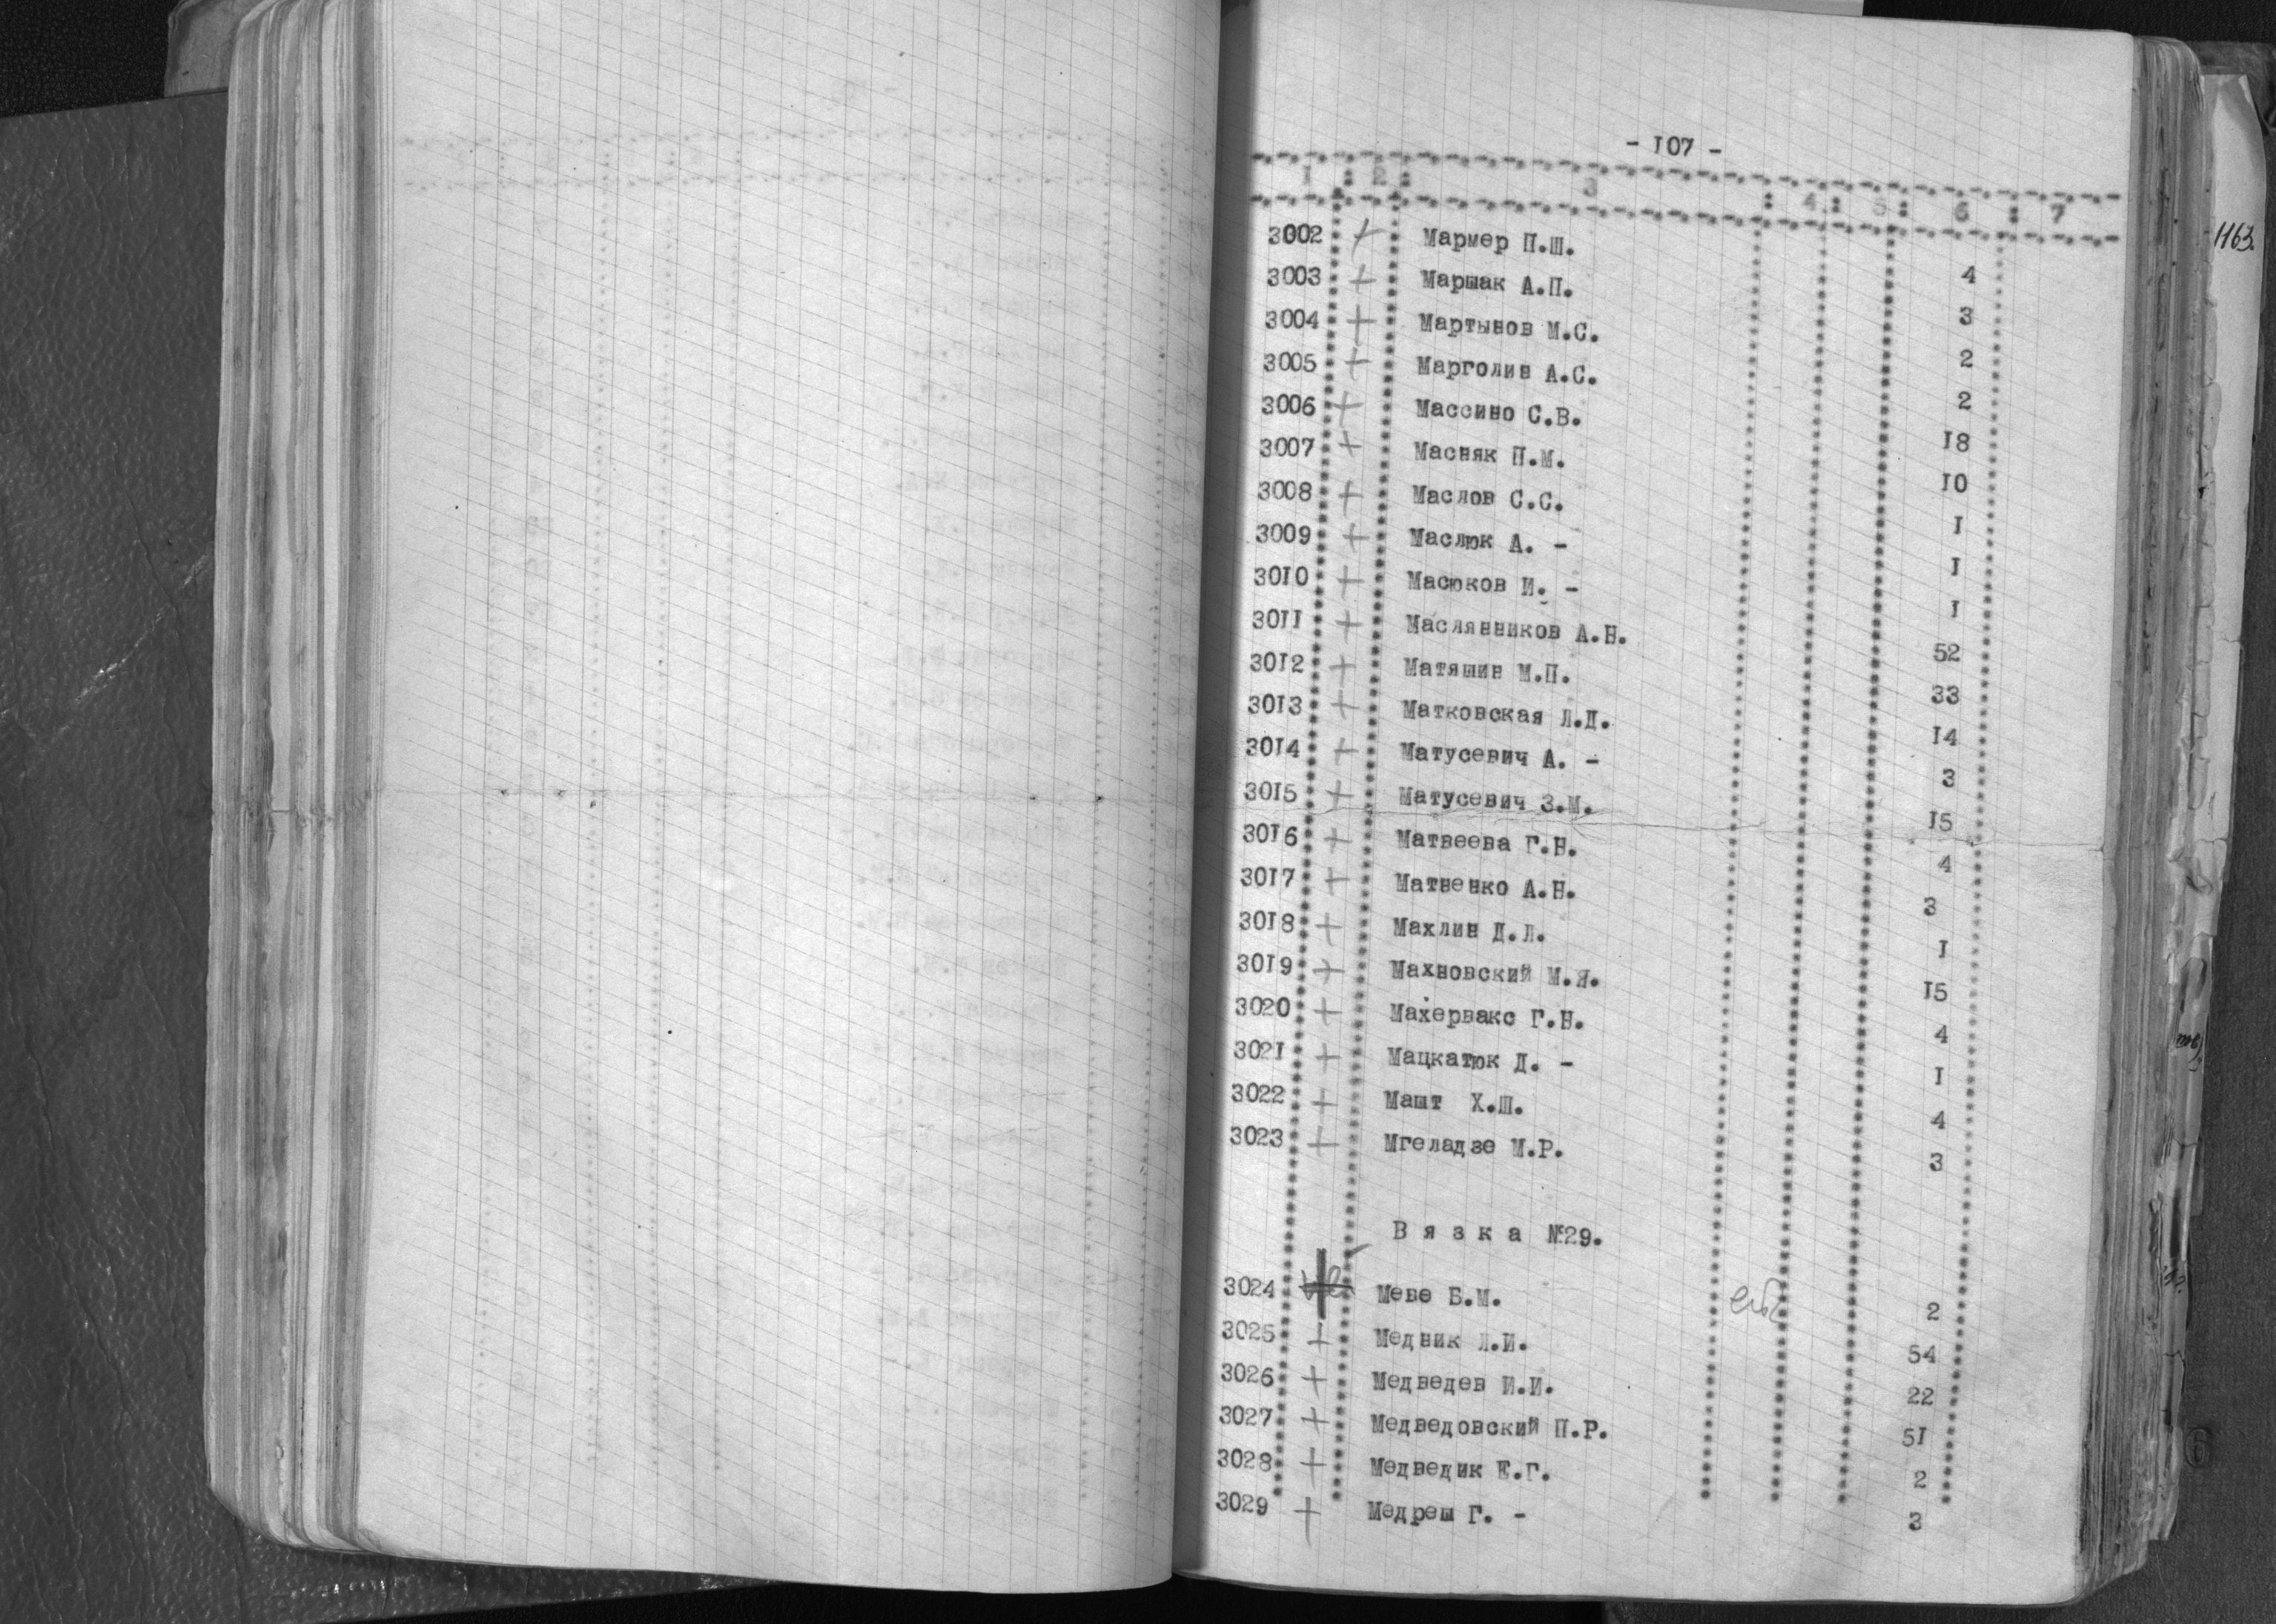 - I07 -
I : 2 : 3 : 4 : 5 : 6 : 7
3002 + Мармер П.Ш. 4
3003 + Маршак А.П. 3
3004 + Мартынов М.С. 2
3005 + Марголин А.С. 2
3006 + Массино С.В. I8
3007 + Масняк П.М. I0
3008 + Маслов С.С. I
3009 + Маслюк А. - I
30I0 + Масюков И. - I
30II + Маслянников А.Н. 52
30I2 + Матяшин М.П. 33
30I3 + Матковская Л.Д. I4
30I4 + Матусевич А. - 3
30I5 + Матусевич З.М. I5
30I6 + Матвеева Г.Н. 4
30I7 + Матвенко А.Н. 3
30I8 + Махлин Д.Л. I
30I9 + Махновский М.Я. I5
3020 + Махервакс Г.Н. 4
302I + Мацкатюк Д. - I
3022 + Машт Х.Ш. 4
3023 + Мгеладзе М.Р. 3
В я з к а №29.
3024 + Меве Б.М. 2
3025 + Медник Л.И. 54
3026 + Медведев И.И. 22
3027 + Медведовский П.Р. 5I
3028 + Медведик Е.Г. 2
3029 + Медреш Г. - 3
1163.